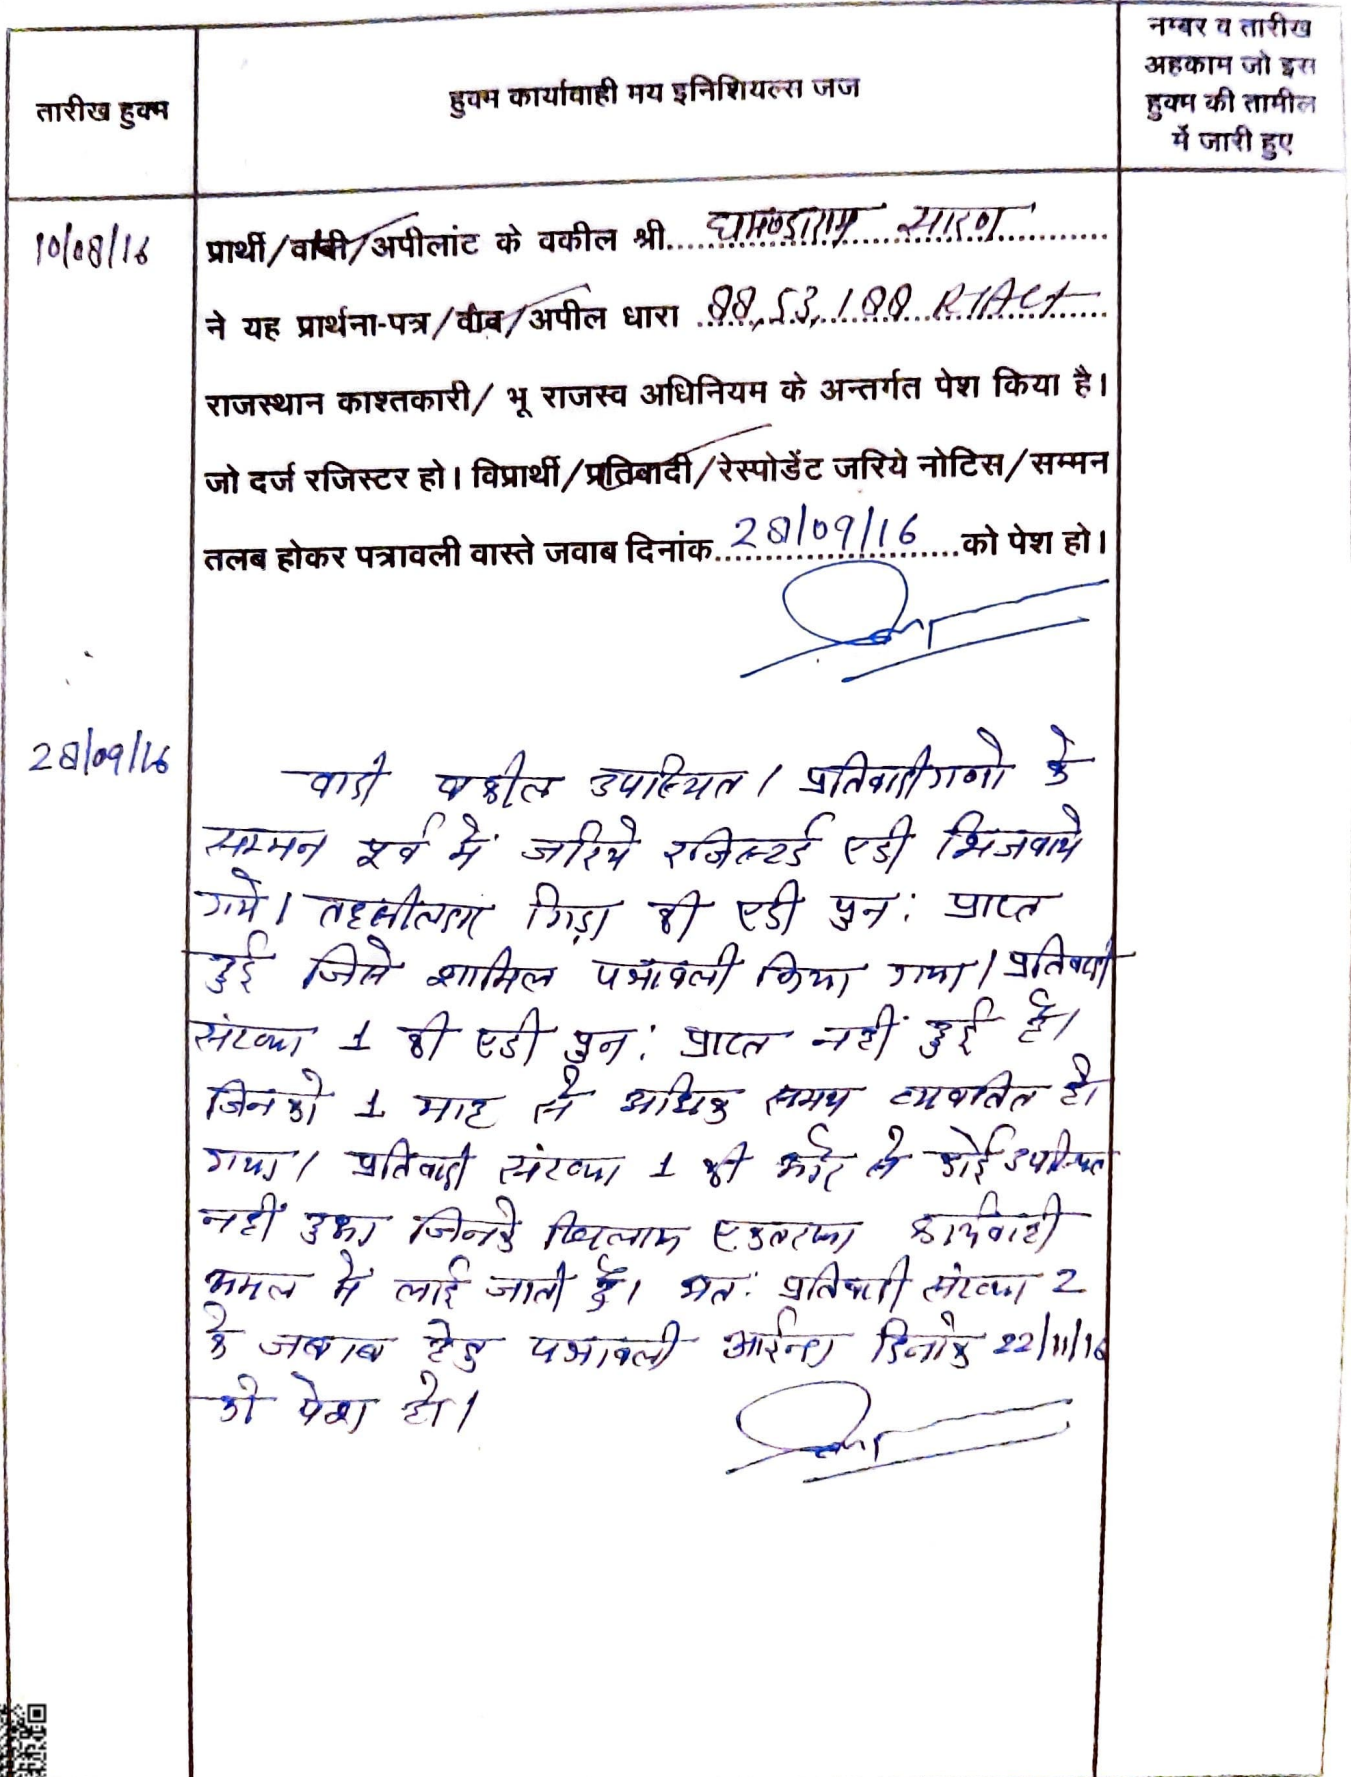 तारीख हुक्म
हुक्म कार्यावाही मय इनिशियल्स जज
नम्बर व तारीख
अहकाम जो इस
हुक्म की तामील
में जारी हुए
10/08/16
प्रार्थी/वादी/अपीलांट के वकील श्री घमण्डाराम सारण
ने यह प्रार्थना-पत्र/वाद/अपील धारा 88,53,188 RTAct
राजस्थान काश्तकारी/ भू राजस्व अधिनियम के अन्तर्गत पेश किया है।
जो दर्ज रजिस्टर हो। विप्रार्थी/प्रतिवादी/रेस्पोडेंट जरिये नोटिस/सम्मन
तलब होकर पत्रावली वास्ते जवाब दिनांक 28/09/16 को पेश हो।
28/09/16
वादी वकील उपस्थित। प्रतिवादीगणो के
सम्मन पूर्व में जरिये रजिस्टर्ड एडी भिजवाये
गये। तहसीलदार गिड़ा की एडी पुन: प्राप्त
हुई जिसे शामिल पत्रावली किया गया। प्रतिवादी
संख्या 1 की एडी पुन: प्राप्त नहीं हुई है।
जिनको 1 माह से अधिक समय व्यवतित हो
गया। प्रतिवादी संख्या 1 की और से कोई उपस्थित
नहीं हुआ जिनके खिलाफ एकतरफा कार्यवाही
अमल में लाई जाती है। अत: प्रतिवादी संख्या 2
के जबाब हेतु पत्रावली आईन्दा दिनांक 22/11/16
को पेश हो।